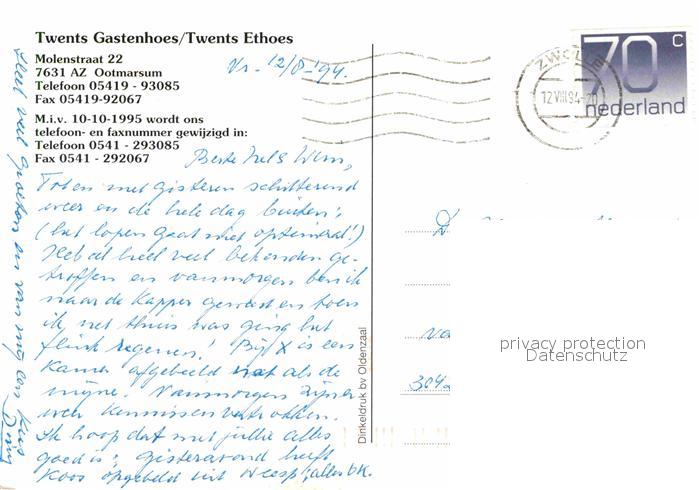 Twents Gastenhoes/Twents Ethoes
Molenstraat 22
7631 AZ Ootmarsum
Telefoon 05419 - 93085
Fax 05419-92067
M.i.v. 10-10-1995 wordt ons
telefoon- en faxnummer gewijzigd in:
Telefoon 0541 - 293085
Fax 0541 - 292067
Vr. 12/8-'94.
70 c
nederland
12 VIII 94-20
Beste Nel & Wim,
Tot en met gisteren schitterend
weer en de hele dag buiten,
(het lopen gaat niet optimaal!)
Heb al heel veel bekenden ge-
troffen en vanmorgen ben ik
naar de kapper geweest en toen
ik net thuis was ging het
flink regenen! Bij X is een
kamer afgebeeld net als de
mijne. Vanmorgen zijn er
weer kennissen vertrokken.
Ik hoop dat met jullie alles
goed is; gisteravond heeft
Koos opgebeld uit Weesp; alles ok.
Heel veel groeten en van mij een kus
Dinkeldruk bv Oldenzaal
privacy protection
Datenschutz